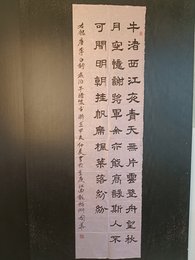 牛渚西江夜青天無片雲登舟望秋
月空憶謝將軍余亦能高詠斯人不
可聞明朝挂帆席楓葉落紛紛
唐李白詩夜泊牛渚懷古